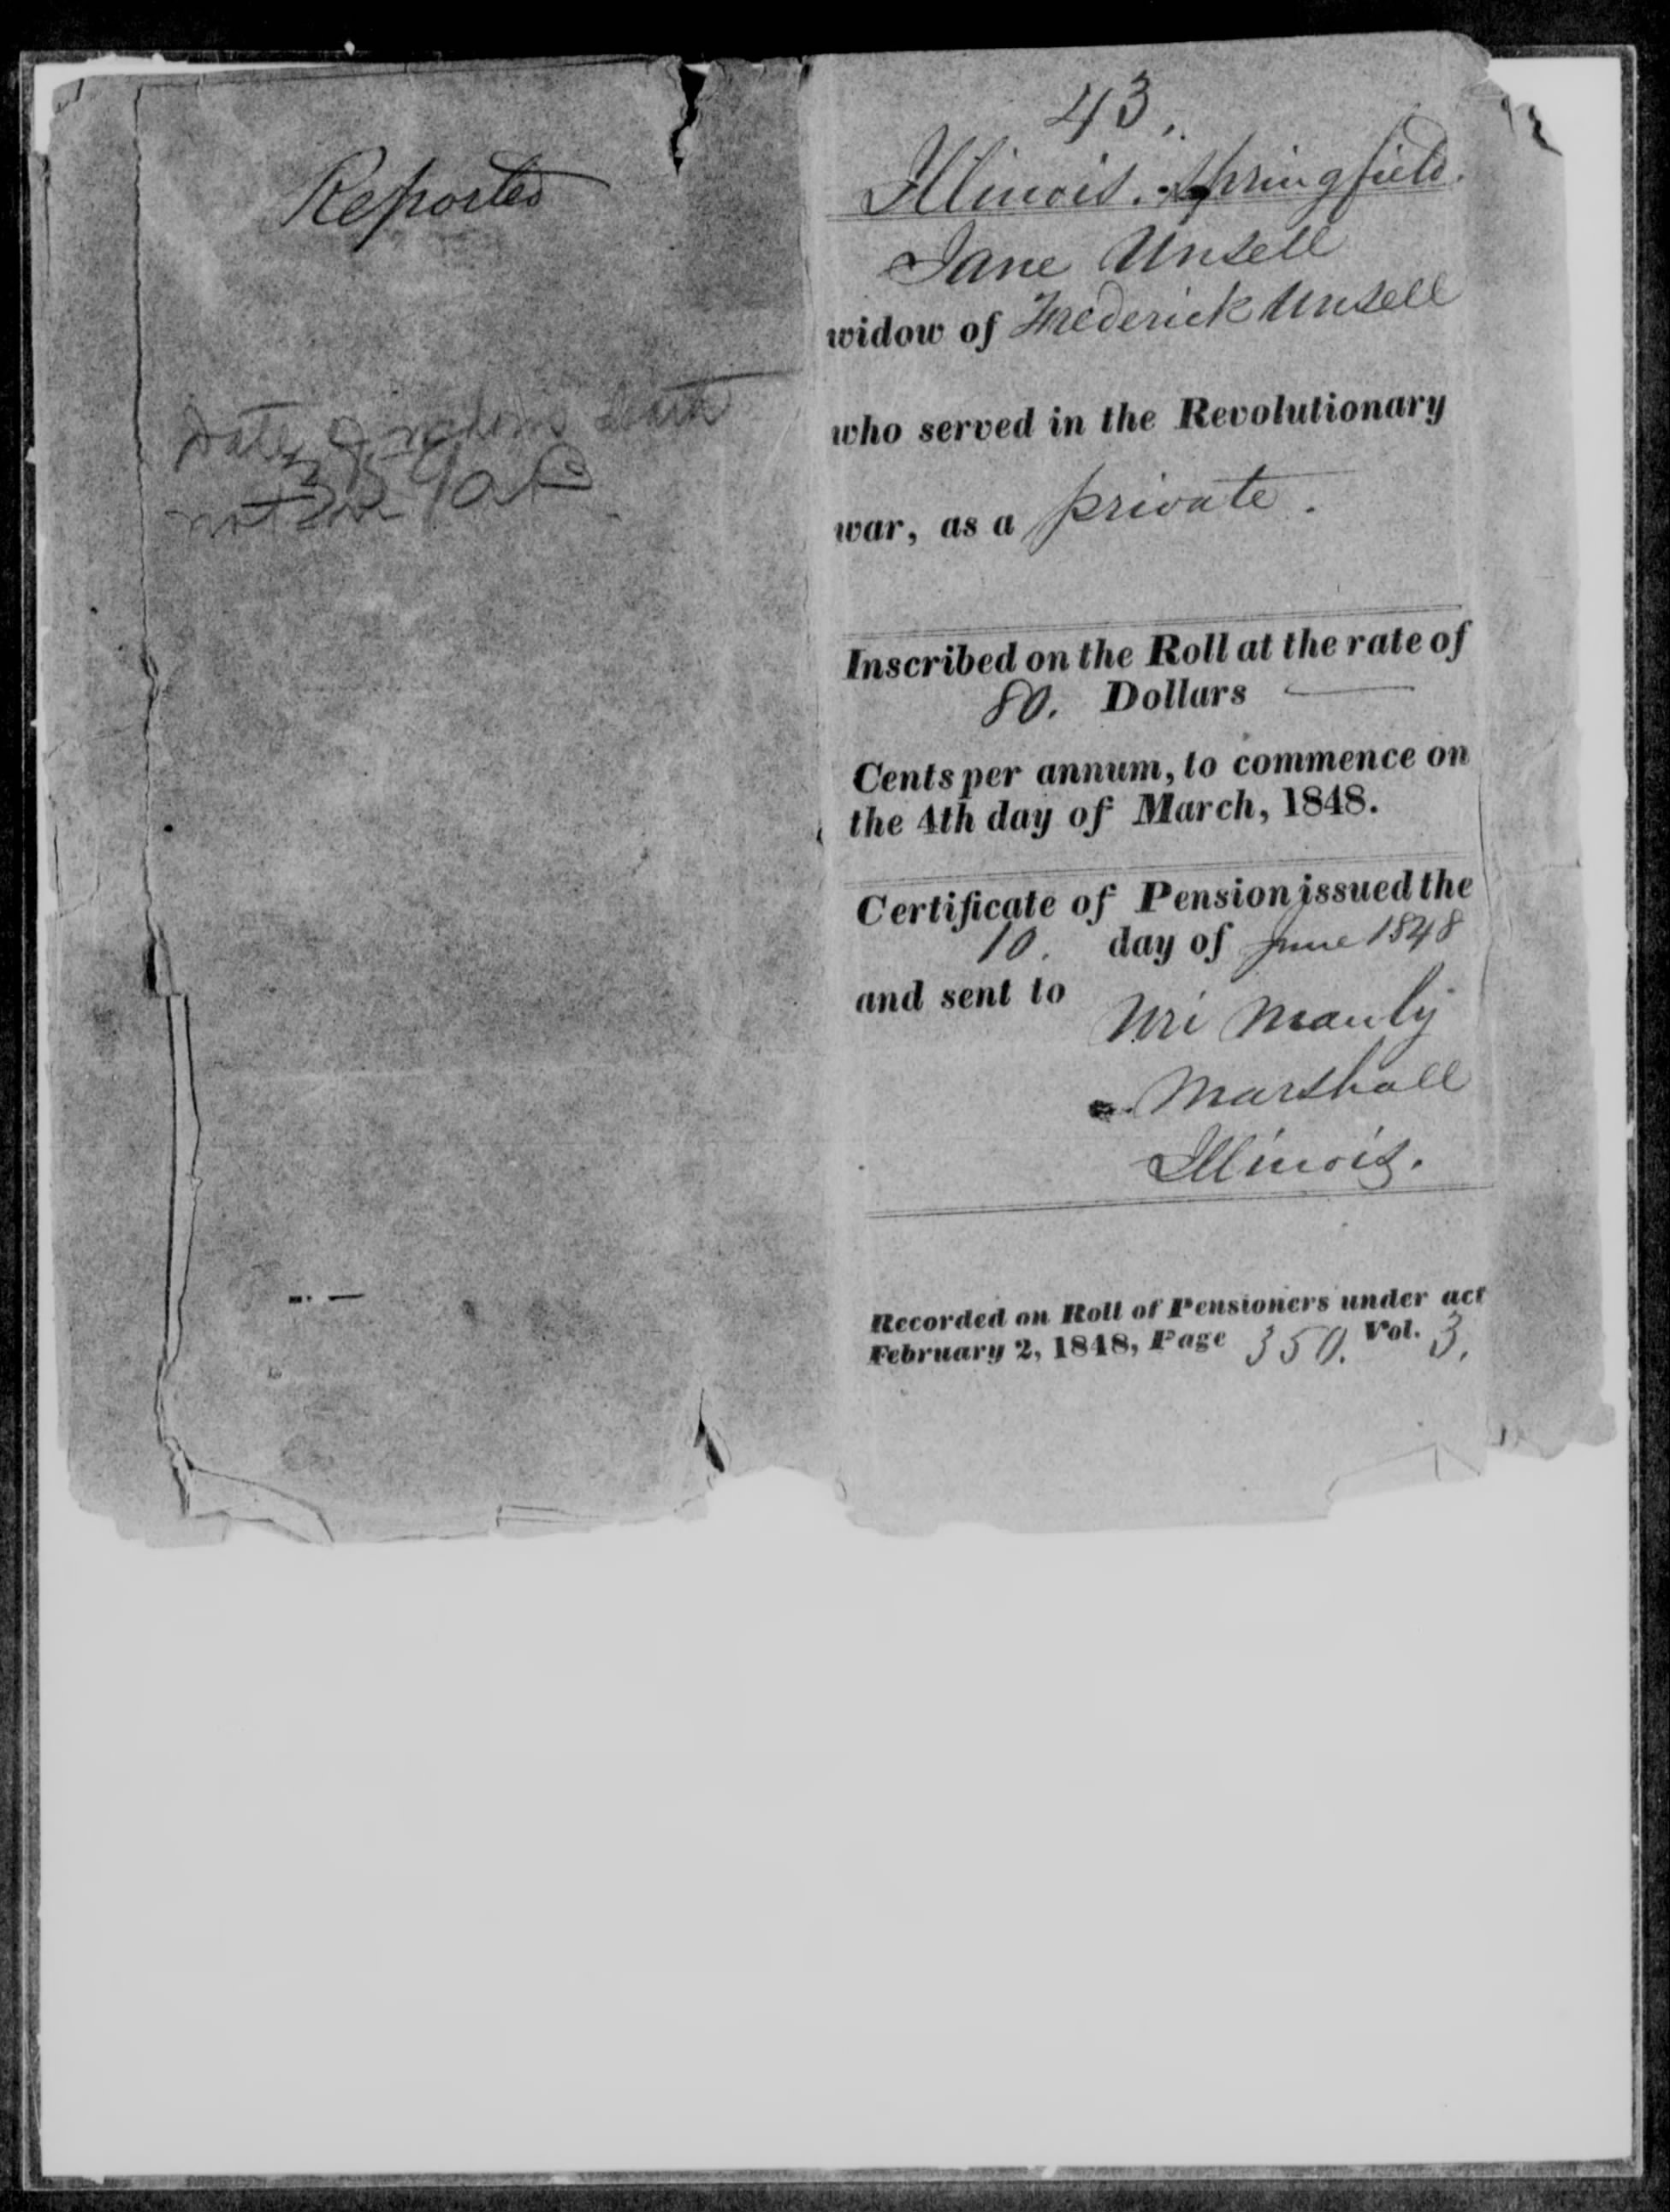 Reported
Date of widow's death
not in
43.
Illinois. Springfield.
Jane Unsell
widow of Frederick Unsell
who served in the Revolutionary
war, as a private.
Inscribed on the Roll at the rate of
80. Dollars —
Cents per annum, to commence on
the 4th day of March, 1848.
Certificate of Pension issued the
10. day of June 1848
and sent to
Uri Manly
Marshall
Illinois.
Recorded on Roll of Pensioners under act
February 2, 1848, Page 350. Vol. 3.